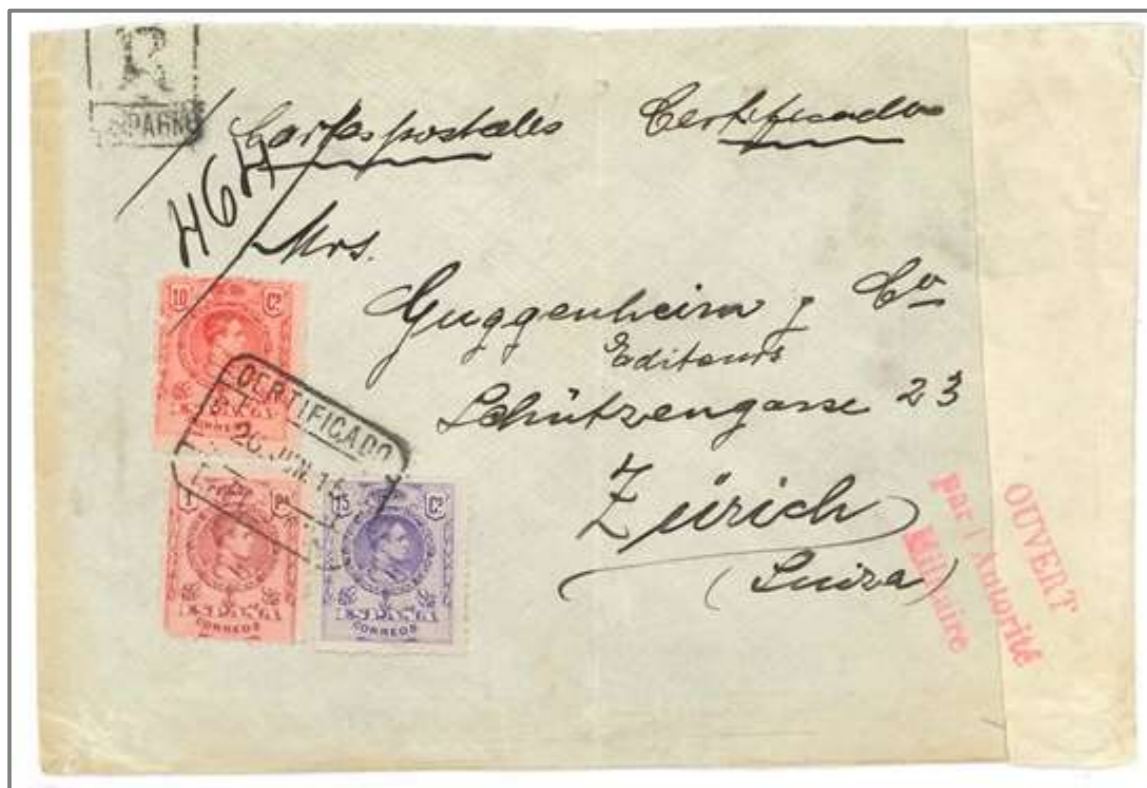 R
ESPAGNE
Cartas postales Certificados
464
Mrs.
Guggenheim y Cº
Editeurs
Schützengasse 23
Zürich
(Suiza)
10 Cs
CORREOS
CERTIFICADO
26 JUN. 15
1 Pta
CORREOS
15 Cs
CORREOS
OUVERT
par l'Autorité
Militaire